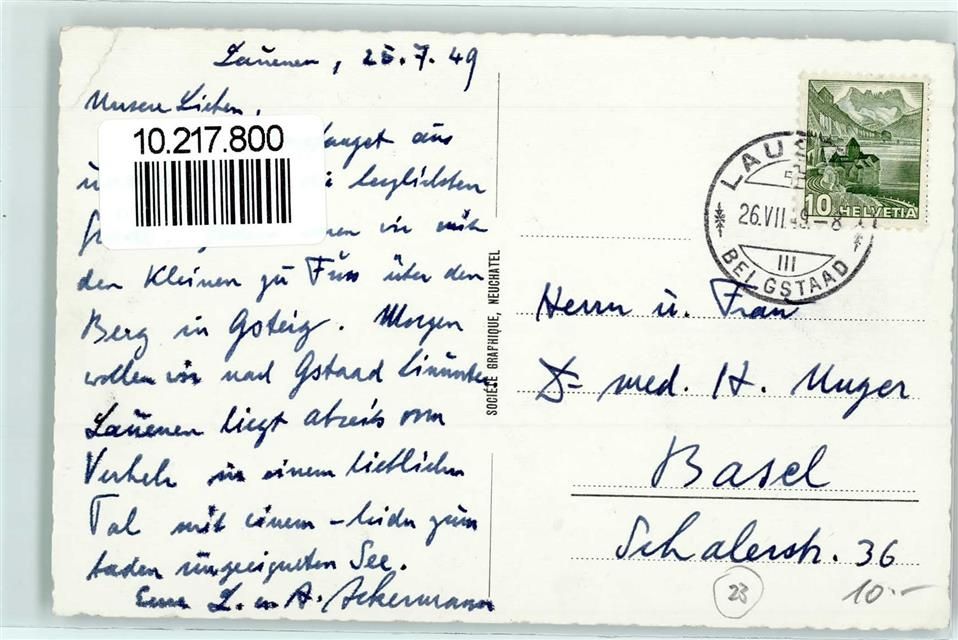 Lauenen, 25.7.49
Unsere Lieben,
10.217.800
aus
herzlichsten
wir mit
den Kleinen zu Fuss über den
Berg in Gsteig. Morgen
wollen wir nach Gstaad hinunter
Lauenen liegt abseits vom
Verkehr in einem lieblichen
Tal mit einem – leider zum
baden ungeeigneten See.
Eure L. u A. Ackermann
SOCIÉTÉ GRAPHIQUE, NEUCHATEL
LAU
26.VII.49.–8
III
BEI GSTAAD
10 HELVETIA
Herrn u. Frau
Dr med. H. Unger
Basel
Schalerstr. 36
23
10.--